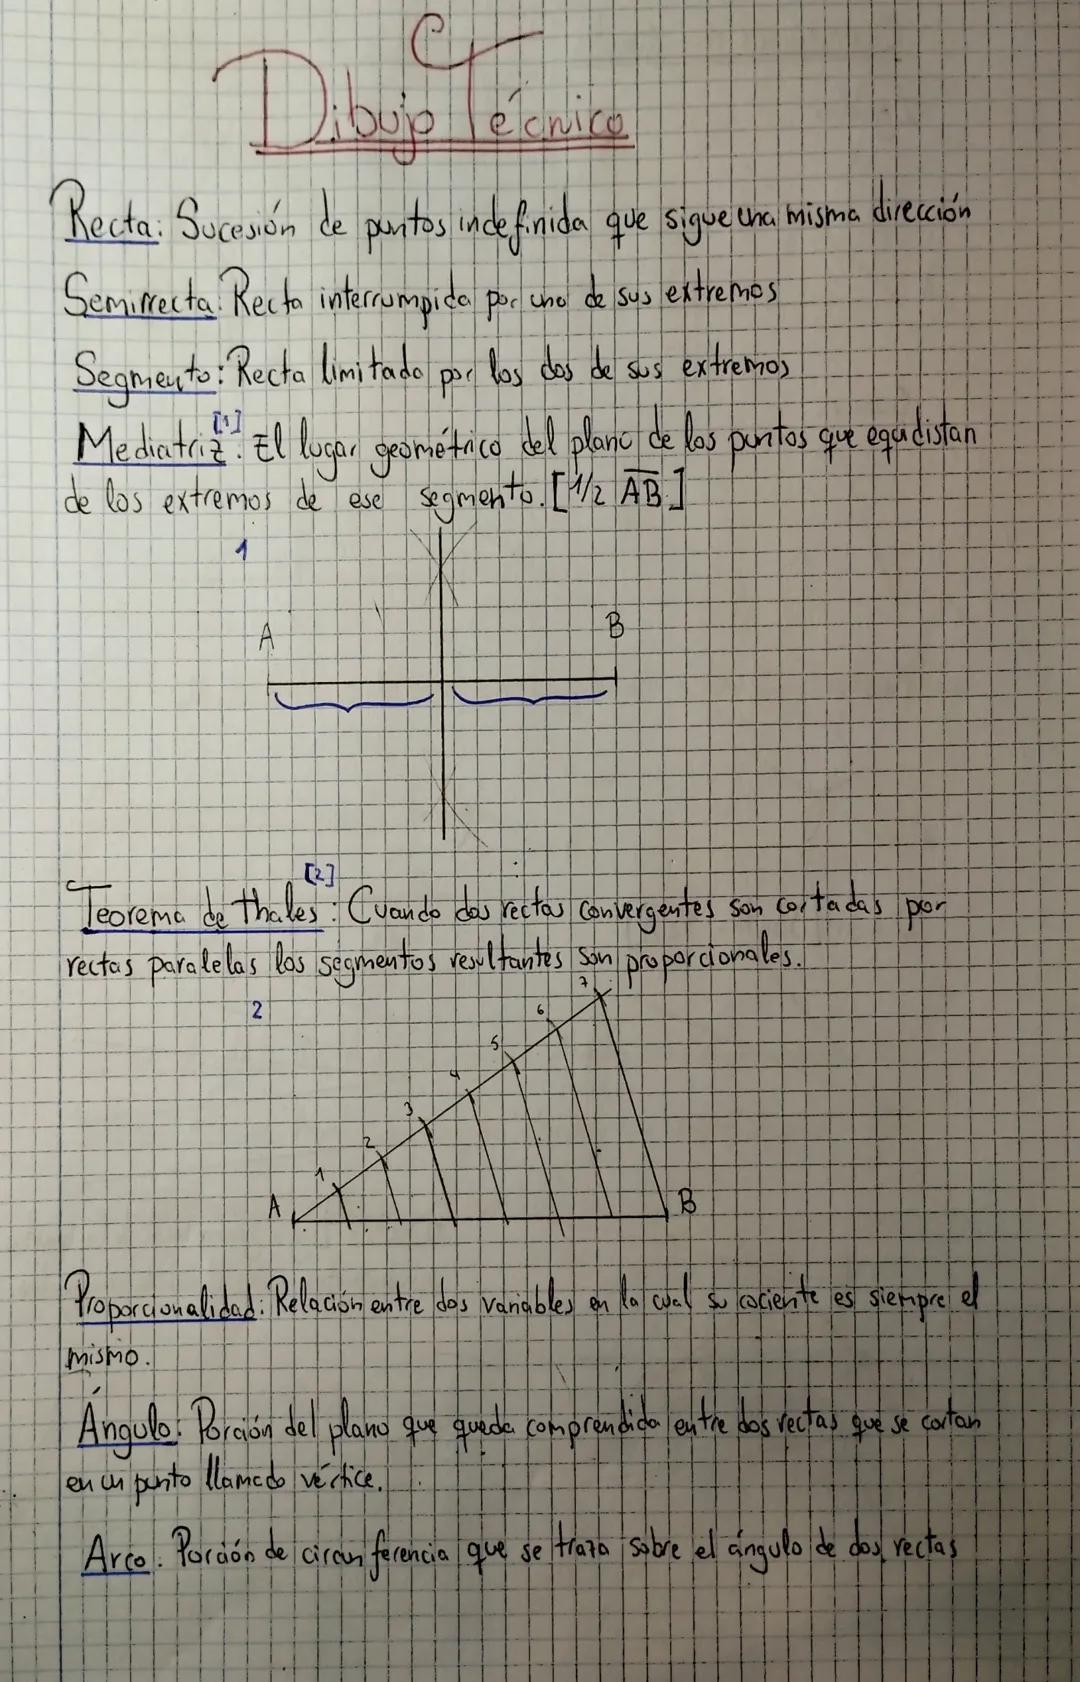 Dibujo Técnico
Recta: Sucesión de puntos indefinida que sigue una misma dirección
Semirrecta: Recta interrumpida por uno de sus extremos
Segmento: Recta limitada por los dos de sus extremos
[1]
Mediatriz: El lugar geométrico del plano de los puntos que equidistan
de los extremos de ese segmento. [1/2 AB]
1
A B
[2]
Teorema de thales: Cuando dos rectas convergentes son cortadas por
rectas paralelas los segmentos resultantes son proporcionales.
2
7
6
5
4
3
2
1
A B
Proporcionalidad: Relación entre dos variables en la cual su cociente es siempre el
mismo.
Ángulo: Porción del plano que queda comprendida entre dos rectas que se cortan
en un punto llamado vértice.
Arco: Porción de circunferencia que se traza sobre el ángulo de dos rectas